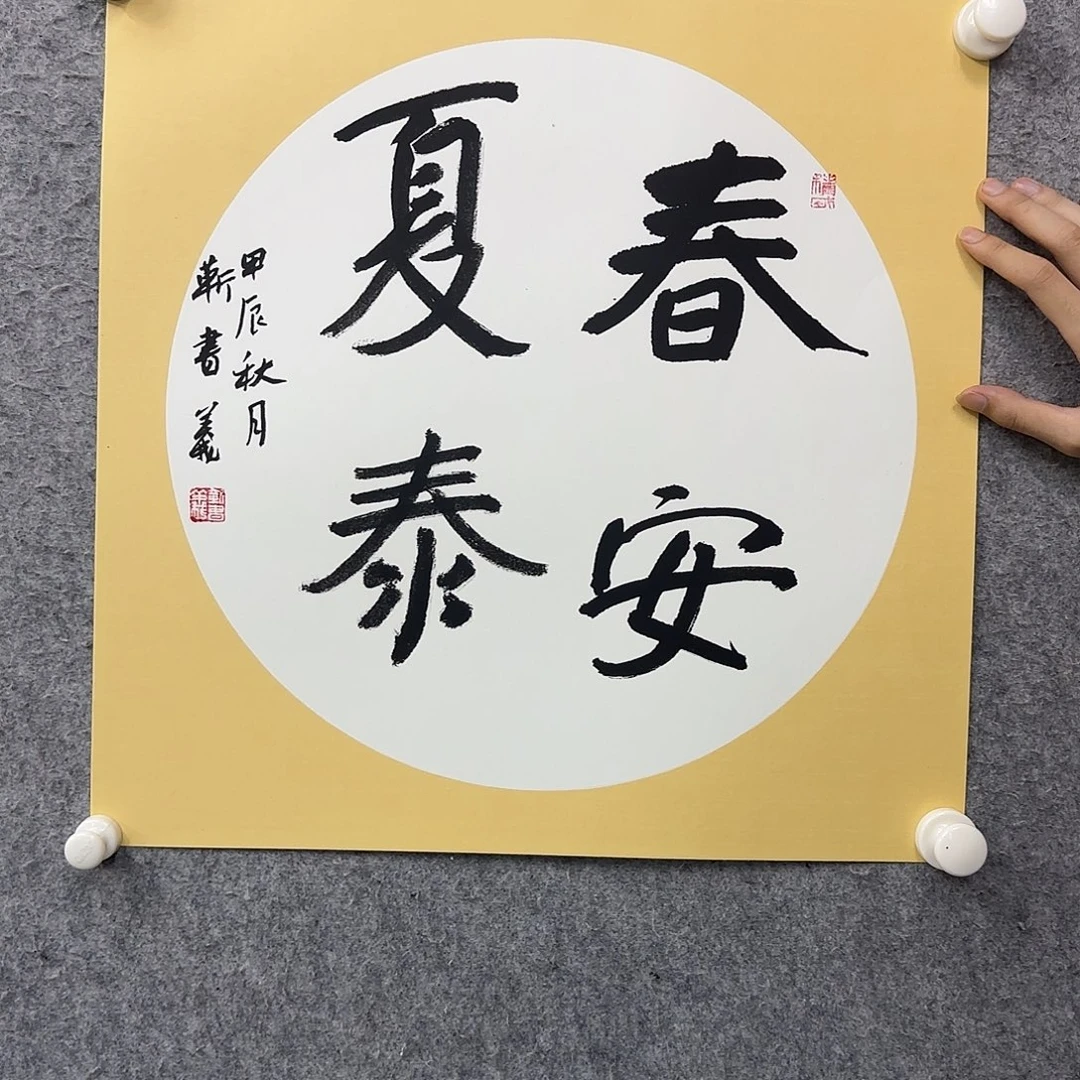 春安
夏泰
甲辰秋月
靳書義